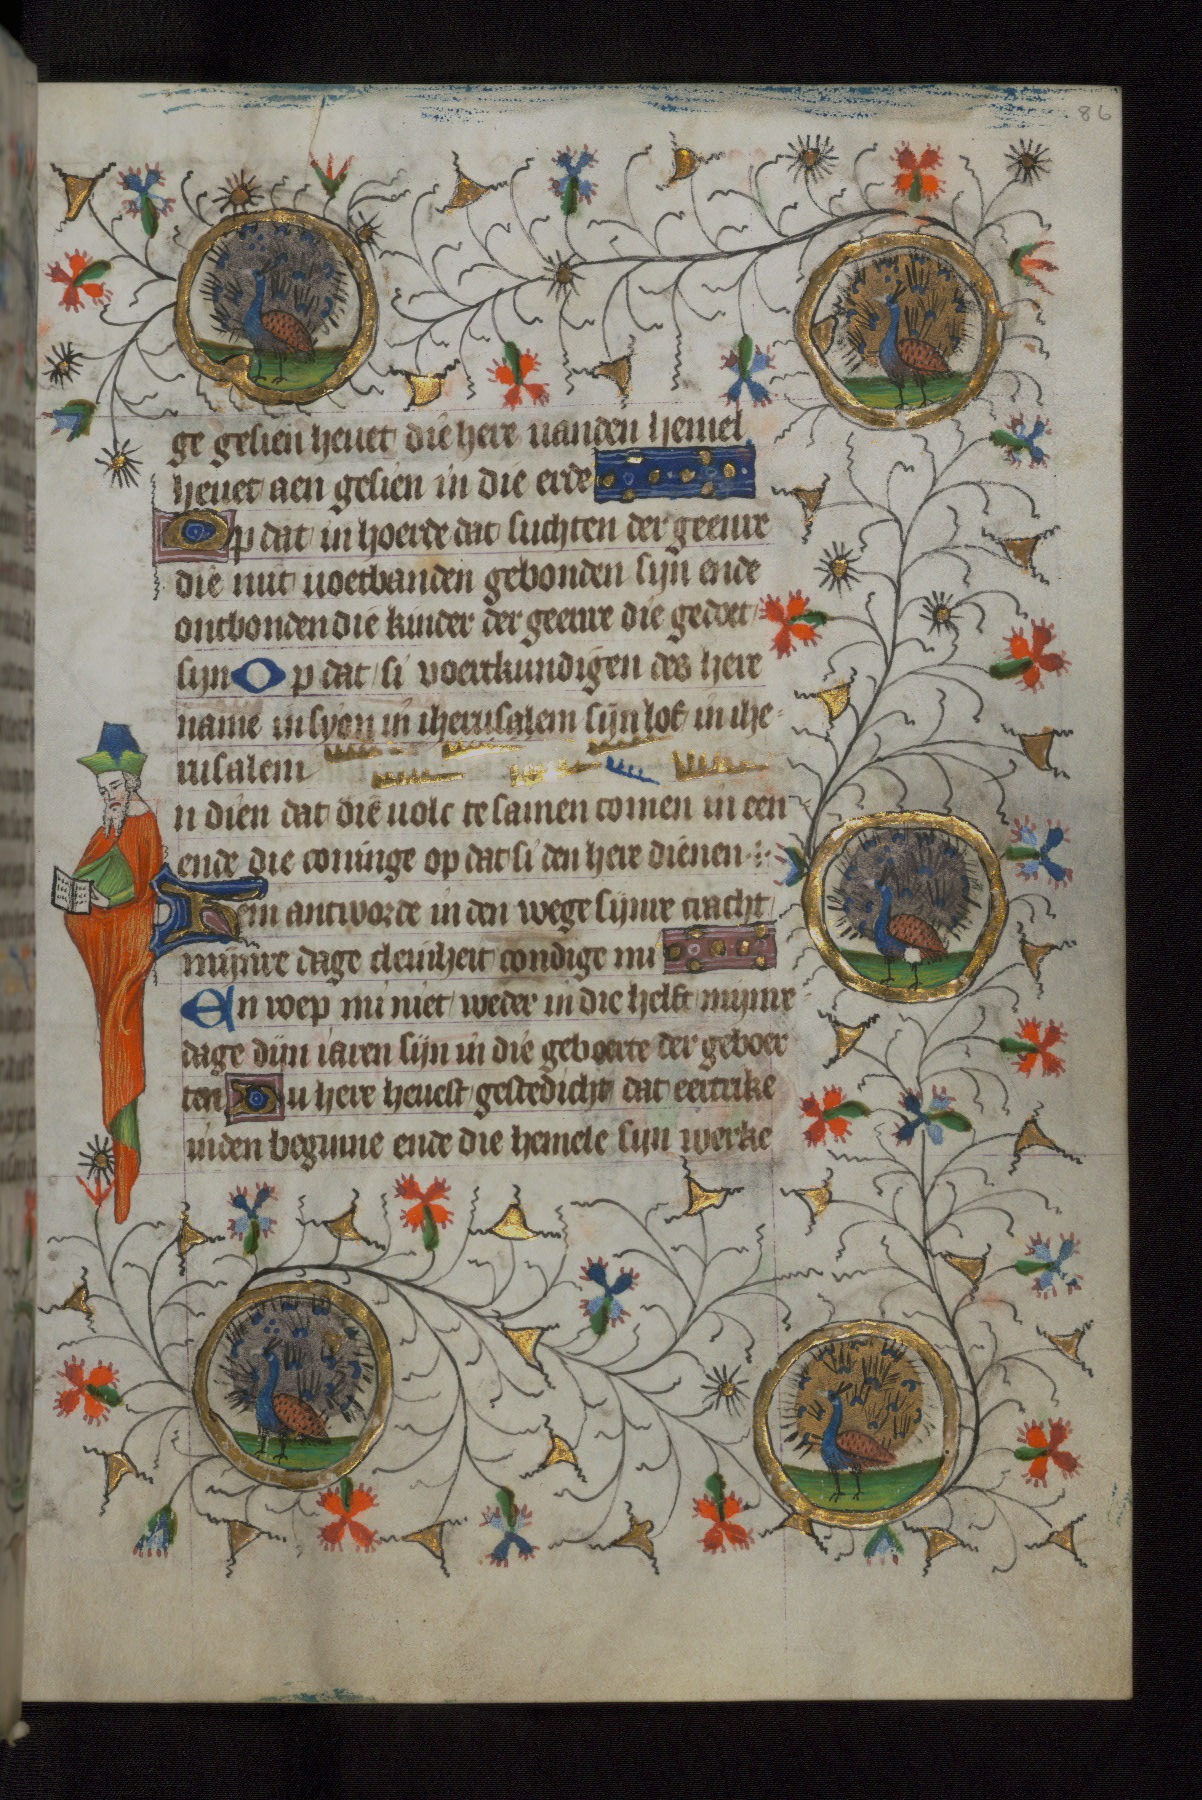 86
ge gesien heuet die here uanden hemel
heuet aen gesien in die erde
Op dat in hoerde dat suchten der geenre
die mit uoetbanden gebonden sijn ende
ontbonden die kinder der geenre die gedoet
sijn Op dat si voertkundigen des here
name in syon in iherusalem sijn lof in ihe
rusalem
In dien dat die uolc te samen comen in een
ende die coninge op dat si den here dienen
Hem antworde in den wege sijnre cracht
mijnre dage cleinheit condige mi
En roep mi niet weder in die helft mijnre
dage dijn iaren sijn in die geboerte der geboer
ten Du here heuest gestedicht dat eertrike
inden beginne ende die hemele sijn werke